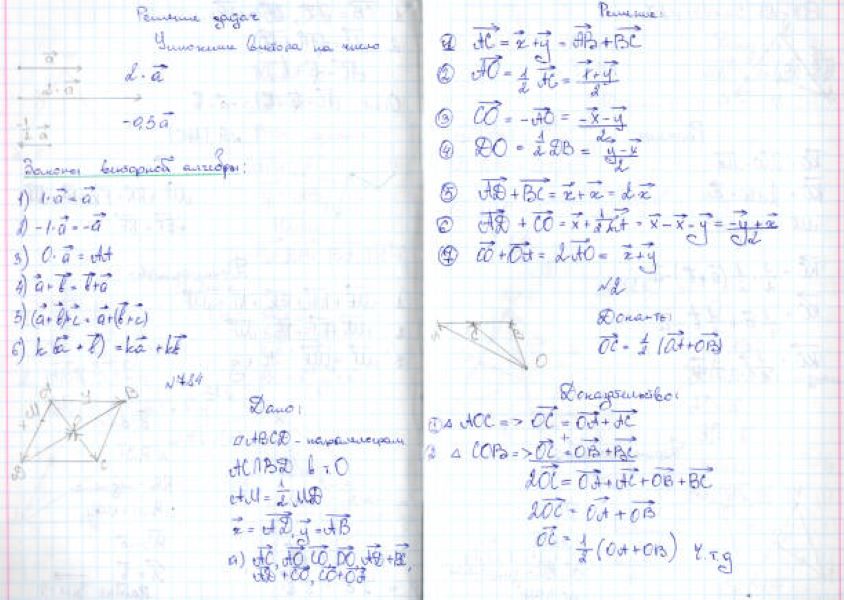 Решение задач
Умножение вектора на число
a⃗
2·a⃗
2·a⃗
-½ a⃗
-0,5a⃗
Законы векторной алгебры:
1) 1·a⃗=a⃗
2) -1·a⃗=-a⃗
3) 0·a⃗=AA⃗
4) a⃗+b⃗=b⃗+a⃗
5) (a⃗+b⃗)+c⃗=a⃗+(b⃗+c⃗)
6) k(a⃗+b⃗)=ka⃗+kb⃗
№784
A y B
M
O
D C
Дано:
ABCD - параллелограм
AC∩BD в т.O
AM=½MD
x⃗=AD⃗, y⃗=AB⃗
а) AC⃗, AO⃗, CO⃗, DO⃗, AD⃗+BC⃗,
AD⃗+CO⃗, CO⃗+OA⃗
Решение:
① AC⃗=x⃗+y⃗=AB⃗+BC⃗
② AO⃗=½AC⃗=(x⃗+y⃗)/2
③ CO⃗=-AO⃗=(-x⃗-y⃗)/2
④ DO⃗=½DB⃗=(y⃗-x⃗)/2
⑤ AD⃗+BC⃗=x⃗+x⃗=2x⃗
⑥ AD⃗+CO⃗=x⃗+½ =x⃗-x⃗-y⃗=(-y⃗+x⃗)/2
⑦ CO⃗+OA⃗=2AO⃗=x⃗+y⃗
№2
Доказать:
OC⃗=½(OA⃗+OB⃗)
A C B
O
Доказательство:
① △AOC=>OC⃗=OA⃗+AC⃗
+
2 △COB=>OC⃗=OB⃗+BC⃗
2OC⃗=OA⃗+AC⃗+OB⃗+BC⃗
2OC⃗=OA⃗+OB⃗
OC⃗=½(OA+OB) Ч.т.д